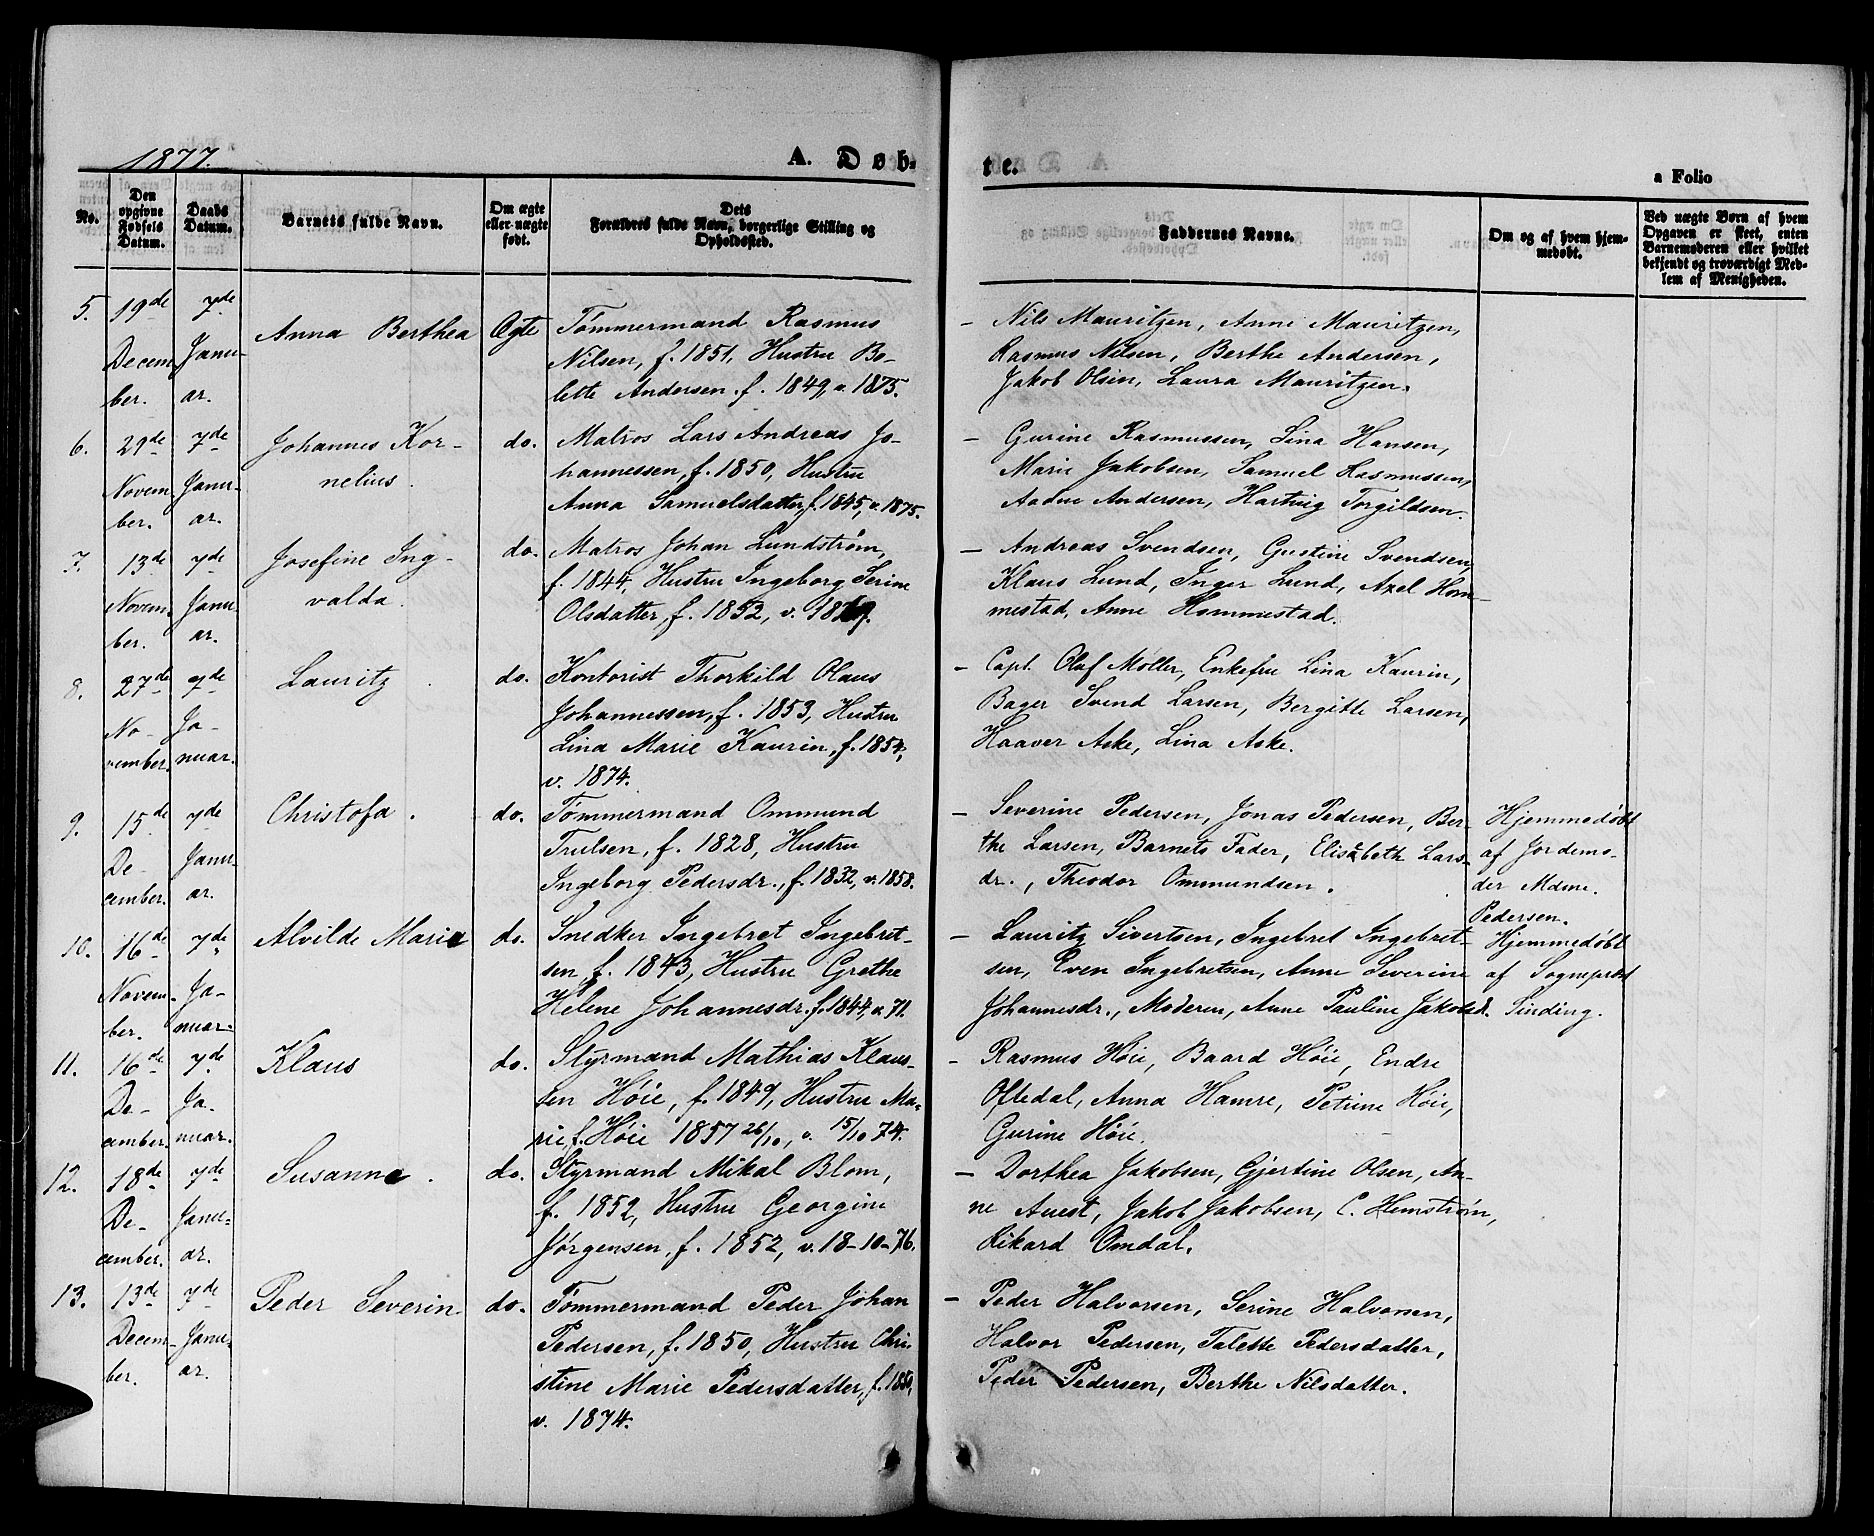 1877.
A. Døb-
te.
a Folio
No.
Den opgivne Fødsels Datum.
Daabs Datum.
Barnets fulde Navn.
Om ægte eller uægte født.
Dets Forældres fulde Navn, borgerlige Stilling og Opholdssted.
Faddernes Navne.
Om og af hvem hjem-
medøbt.
Ved uægte Børn af hvem
Opgaven er skeet, enten
Barnemoderen eller hvilket
bekjendt og troværdigt Med-
lem af Menigheden.
5. 19de Decem ber. 7de Janu- ar.
Anna Berthea
Ægte
Tømmermand Rasmus
Nilsen, f. 1851, Hustru Bo-
lette Andersen f. 1849, v. 1875.
– Nils Mauritzen, Anne Mauritzen,
Rasmus Nilsen, Berthe Andersen,
Jakob Olsen, Laura Mauritzen.
6. 29de Novem- ber. 7de Janu- ar.
Johannes Kor-
nelius.
do.
Matros Lars Andreas Jo-
hannessen, f. 1850, Hustru
Anna Samuelsdatter, f. 1845, v. 1875.
– Gurine Rasmussen, Lina Hansen,
Marie Jakobsen, Samuel Rasmussen,
Aadne Andersen, Hartvig Torgildsen.
7. 13de Novem- ber. 7de Janu ar.
Josefine Ing-
valda.
do.
Matros Johan Lundstrøm,
f. 1844, Hustru Ingeborg Serine
Olsdatter, f. 1852, v.
– Andreas Svendsen, Gustine Svendsen,
Klaus Lund, Inger Lund, Axel Hom-
mestad, Anne Hommestad.
8. 27de No- vember. 7de Ja- nuar.
Lauritz.
do.
Kontorist Thorkild Olaus
Johannessen, f. 1853, Hustru
Lina Marie Kaurin, f. 1854,
v. 1874.
– Capt. Olaf Møller, Enkefru Lina Kaurin,
Bager Svend Larsen, Bergitte Larsen,
Haaver Aske, Lina Aske.
9. 15de De- cember. 7de Janu- ar.
Christofa.
do.
Tømmermand Ommund
Trulsen, f. 1828, Hustru
Ingeborg Pedersdr., f. 1832, v. 1858.
– Severine Pedersen, Jonas Pedersen, Ber-
the Larsen, Barnets Fader, Elisabeth Lars-
dr., Theodor Ommundsen.
Hjemmedøbt
af Jordemo-
der Mdme.
Pedersen.
10. 16de Novem- ber. 7de Ja- nuar.
Alvilde Marie
do.
Snedker Ingebret Ingebret-
sen, f. 1843, Hustru Grethe
Helene Johannesdr. f. 1844, v. 71.
– Lauritz Sivertsen, Ingebret Ingebret-
sen, Even Ingebretsen, Anne Severine
Johannesdr., Moderen, Anne Pauline Jakobsd.
Hjemmedøbt
af Sogneprest
Sinding.
11. 16de De- cember 7de Ja- nuar.
Klaus
do.
Styrmand Mathias Klaus-
sen Høie, f. 1849, Hustru Ma-
rie f. Høie 1857 26/10, v. 15/10 74.
– Rasmus Høie, Baard Høie, Endre
Oftedal, Anna Hamre, Petrine Høie,
Gurine Høie.
12. 18de De- cember. 7de Janu- ar.
Susanne.
do.
Styrmand Mikal Blom,
f. 1852, Hustru Georgine
Jørgensen, f. 1852, v. 18-10-76.
– Dorthea Jakobsen, Gjertine Olsen, An-
ne Auest, Jakob Jakobsen, C. Hemstrøm,
Rikard Omdal.
13. 13de Decem- ber. 7de Janu- ar.
Peder Severin
do.
Tømmermand Peder Johan
Pedersen, f. 1850, Hustru Chri-
stine Marie Pedersdatter, f. 1850,
v. 1874.
– Peder Halvorsen, Serine Halvorsen,
Halvor Pedersen, Talette Pedersdatter,
Peder Pedersen, Berthe Nilsdatter.